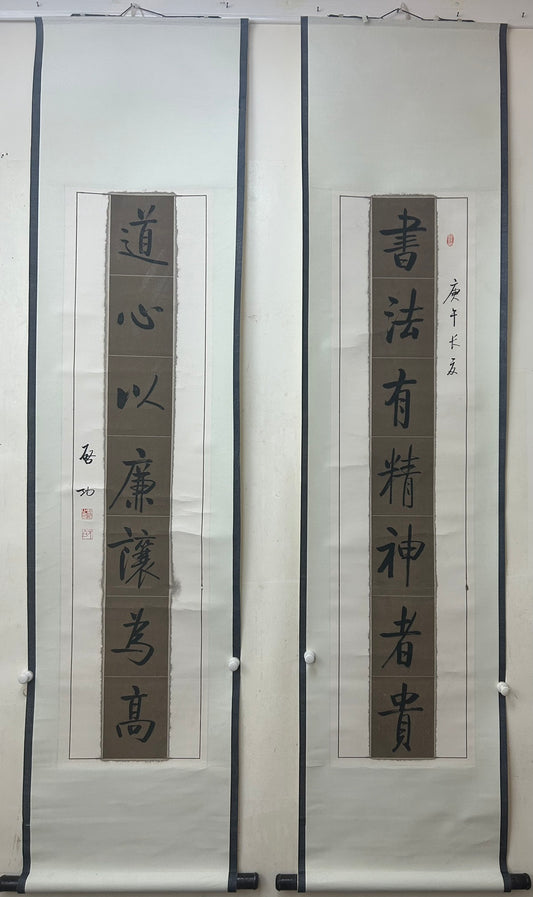 庚午长夏
書法有精神者貴
道心以廉讓為高
啓功